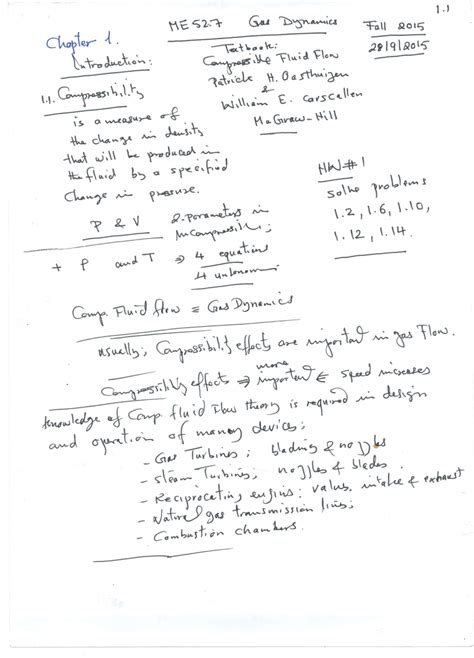 1.1
ME 527 Gas Dynamics Fall 2015
28/9/2015
Chapter 1.
Introduction:
Textbook:
Compressible Fluid Flow
Patrick H. Oosthuizen
&
William E. Carscallen
McGraw-Hill
1.1. Compressibility
is a measure of
the change in density
that will be produced in
the fluid by a specified
change in pressure.
HW#1
solve problems
1.2, 1.6, 1.10,
1.12, 1.14.
P & V 2-Parameters in
incompressible;
+ ρ and T ⇒ 4 equations
4 unknowns
Comp. Fluid flow ≡ Gas Dynamics
usually; Compressibility effects are important in gas Flow.
Compressibility effects ⇒ more important ⇐ speed increases
Knowledge of Comp fluid Flow theory is required in design
and operation of many devices;
- Gas Turbines; blading & nozzles
- Steam Turbines; nozzles & blades.
- Reciprocating engins: valves, intake & exhaust
- Natural gas transmission lines;
- Combustion chambers.